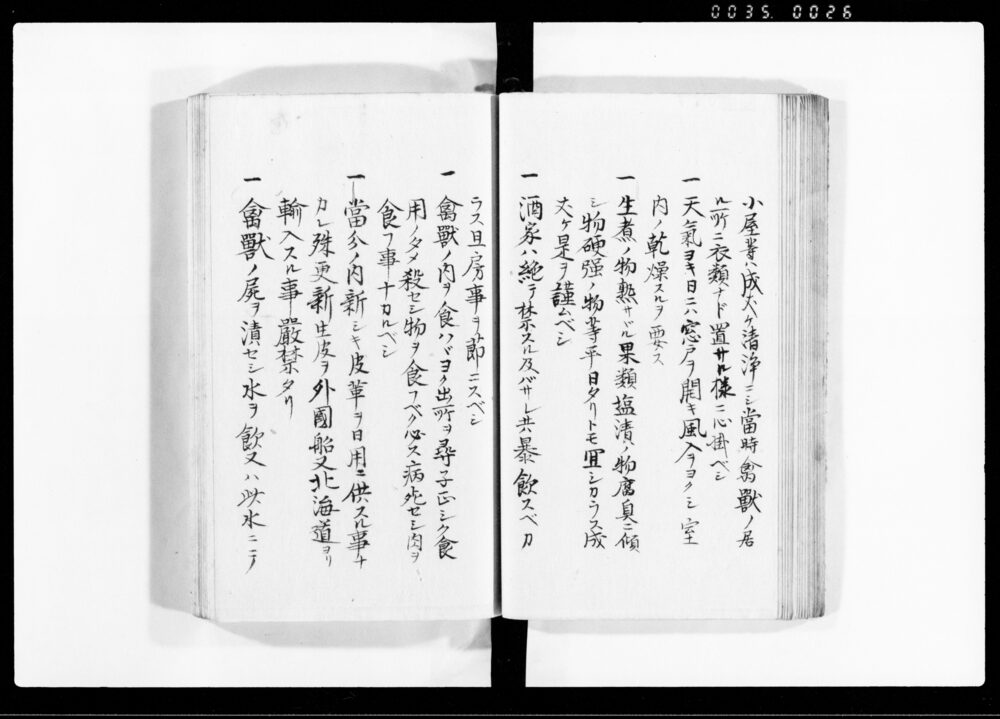 0035. 0026
小屋等ハ成丈ケ清浄ニシ當時禽獸ノ居
ル所ニ衣類ナド置サル様ニ心掛ベシ
一天氣ヨキ日ニハ窓戸ヲ開キ風入ヲヨクシ室
内ノ乾燥スルヲ要ス
一生煮ノ物熟サル果類塩漬ノ物腐臭ニ傾
シ物硬强ノ物等平日タリトモ冝シカラス成
丈ケ是ヲ謹ムベシ
一酒家ハ絶テ禁スル及バサレ共ハ暴飲スベカ
ラス且房事ヲ節ニスベシ
一禽獸ノ肉ヲ食ハバヨク出所ヲ尋子正シク食
用ノタメ殺セシ物ヲ食フベク必ス病死セシ肉ヲ
食フ事ナカルベシ
一當分ノ内新シキ皮革ヲ日用ニ供スル事ナ
カレ殊更新生皮ヲ外國船又北海道ヨリ
輸入スル事嚴禁タリ
一禽獸ノ屍ヲ漬セシ水ヲ飲又ハ此水ニテ